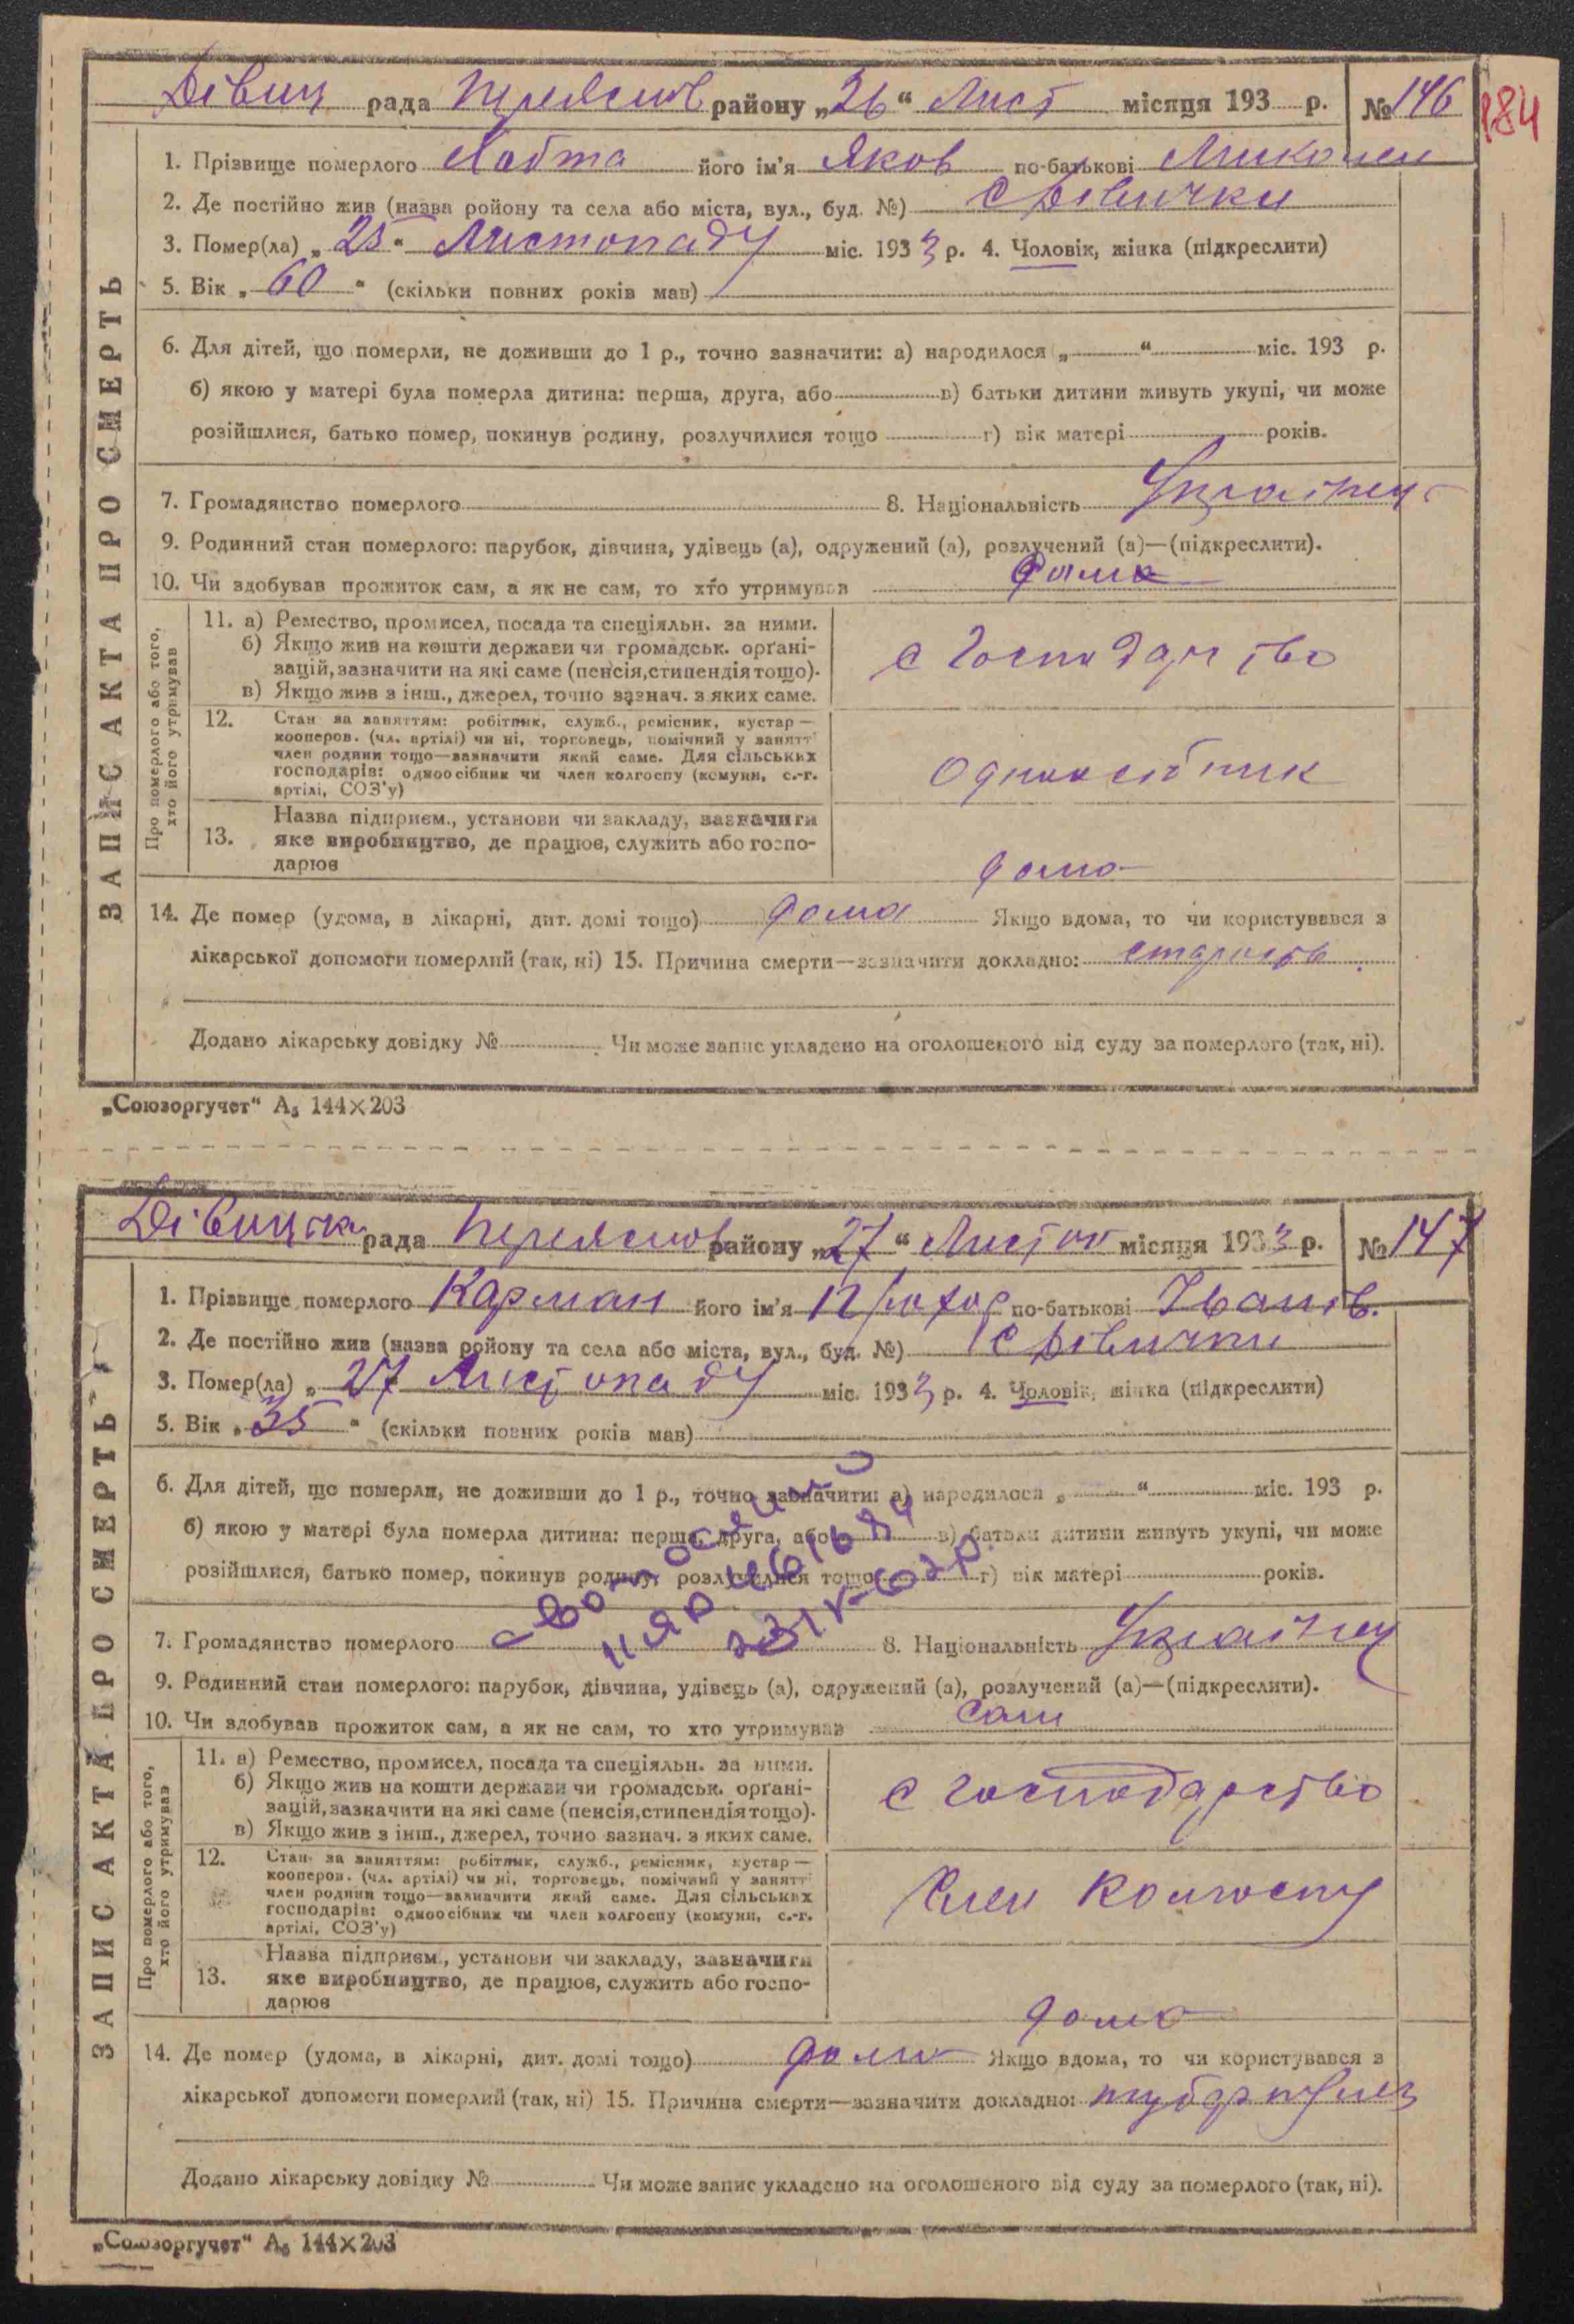 Дівиц рада Переяслов району „26“ Лист місяця 193 р. № 146
184
ЗАПИС АКТА ПРО СМЕРТЬ
1. Прізвище померлого Лобта його ім'я Яков по-батькові Миколаєв
2. Де постійно жив (назва ройону та села або міста, вул., буд. №) с Дівички
3. Помер(ла) „25“ Листопаду міс. 1933 р. 4. Чоловік, жінка (підкреслити)
5. Вік „60“ (скільки повних років мав)
6. Для дітей, що померли, не доживши до 1 р., точно зазначити: а) народилося „ “ міс. 193 р.
б) якою у матері була померла дитина: перша, друга, або в) батьки дитини живуть укупі, чи може
розійшлися, батько помер, покинув родину, розлучилися тощо г) вік матері років.
7. Громадянство померлого 8. Національність Українец
9. Родинний стан померлого: парубок, дівчина, удівець (а), одружений (а), розлучений (а)—(підкреслити).
10. Чи здобував прожиток сам, а як не сам, то хто утримував
Про померлого або того, хто його утримував
11. а) Ремество, промисел, посада та спеціяльн. за ними.
б) Якщо жив на кошти держави чи громадськ. орґані-
зацій, зазначити на які саме (пенсія, стипендія тощо).
в) Якщо жив з інш., джерел, точно зазнач. з яких саме.
с Господарство
12. Стан за заняттям: робітник, служб., ремісник, кустар—
кооперов. (чл. артілі) чи ні, торговець, помічний у занятт
член родини тощо—зазначити який саме. Для сільських
господарів: одноосібник чи член колгоспу (комуни, с.-г.
артілі, СОЗ'у)
Одноосібник
13. Назва підприєм., установи чи закладу, зазначити
яке виробництво, де працює, служить або госпо-
дарює
дома
14. Де помер (удома, в лікарні, дит. домі тощо) дома Якщо вдома, то чи користувався з
лікарської допомоги померлий (так, ні) 15. Причина смерти—зазначити докладно: старость
Додано лікарську довідку № Чи може запис укладено на оголошеного від суду за померлого (так, ні).
„Союзоргучет“ А₅ 144×203
Дівицька рада Переяслов району „27“ Листоп місяця 1933 р. № 147
ЗАПИС АКТА ПРО СМЕРТЬ
1. Прізвище померлого Карман його ім'я Прохор по-батькові Іванів.
2. Де постійно жив (назва ройону та села або міста, вул., буд. №) с Дівички
3. Помер(ла) „27 Листопаду міс. 1933 р. 4. Чоловік, жінка (підкреслити)
5. Вік „35“ (скільки повних років мав)
6. Для дітей, що померли, не доживши до 1 р., точно зазначити: а) народилося „ “ міс. 193 р.
б) якою у матері була померла дитина: перша, друга, або в) батьки дитини живуть укупі, чи може
розійшлися, батько помер, покинув родину, розлучилися тощо г) вік матері років.
7. Громадянство померлого 8. Національність Українец
9. Родинний стан померлого: парубок, дівчина, удівець (а), одружений (а), розлучений (а)—(підкреслити).
10. Чи здобував прожиток сам, а як не сам, то хто утримував Сам
Про померлого або того, хто його утримував
11. а) Ремество, промисел, посада та спеціяльн. за ними.
б) Якщо жив на кошти держави чи громадськ. орґані-
зацій, зазначити на які саме (пенсія, стипендія тощо).
в) Якщо жив з інш., джерел, точно зазнач. з яких саме.
с господарство
12. Стан за заняттям: робітник, служб., ремісник, кустар—
кооперов. (чл. артілі) чи ні, торговець, помічний у занятт
член родини тощо—зазначити який саме. Для сільських
господарів: одноосібник чи член колгоспу (комуни, с.-г.
артілі, СОЗ'у)
Член Колгоспу
13. Назва підприєм., установи чи закладу, зазначити
яке виробництво, де працює, служить або госпо-
дарює
дома
14. Де помер (удома, в лікарні, дит. домі тощо) дома Якщо вдома, то чи користувався з
лікарської допомоги померлий (так, ні) 15. Причина смерти—зазначити докладно:
Додано лікарську довідку № Чи може запис укладено на оголошеного від суду за померлого (так, ні).
„Союзоргучет“ А₅ 144×203